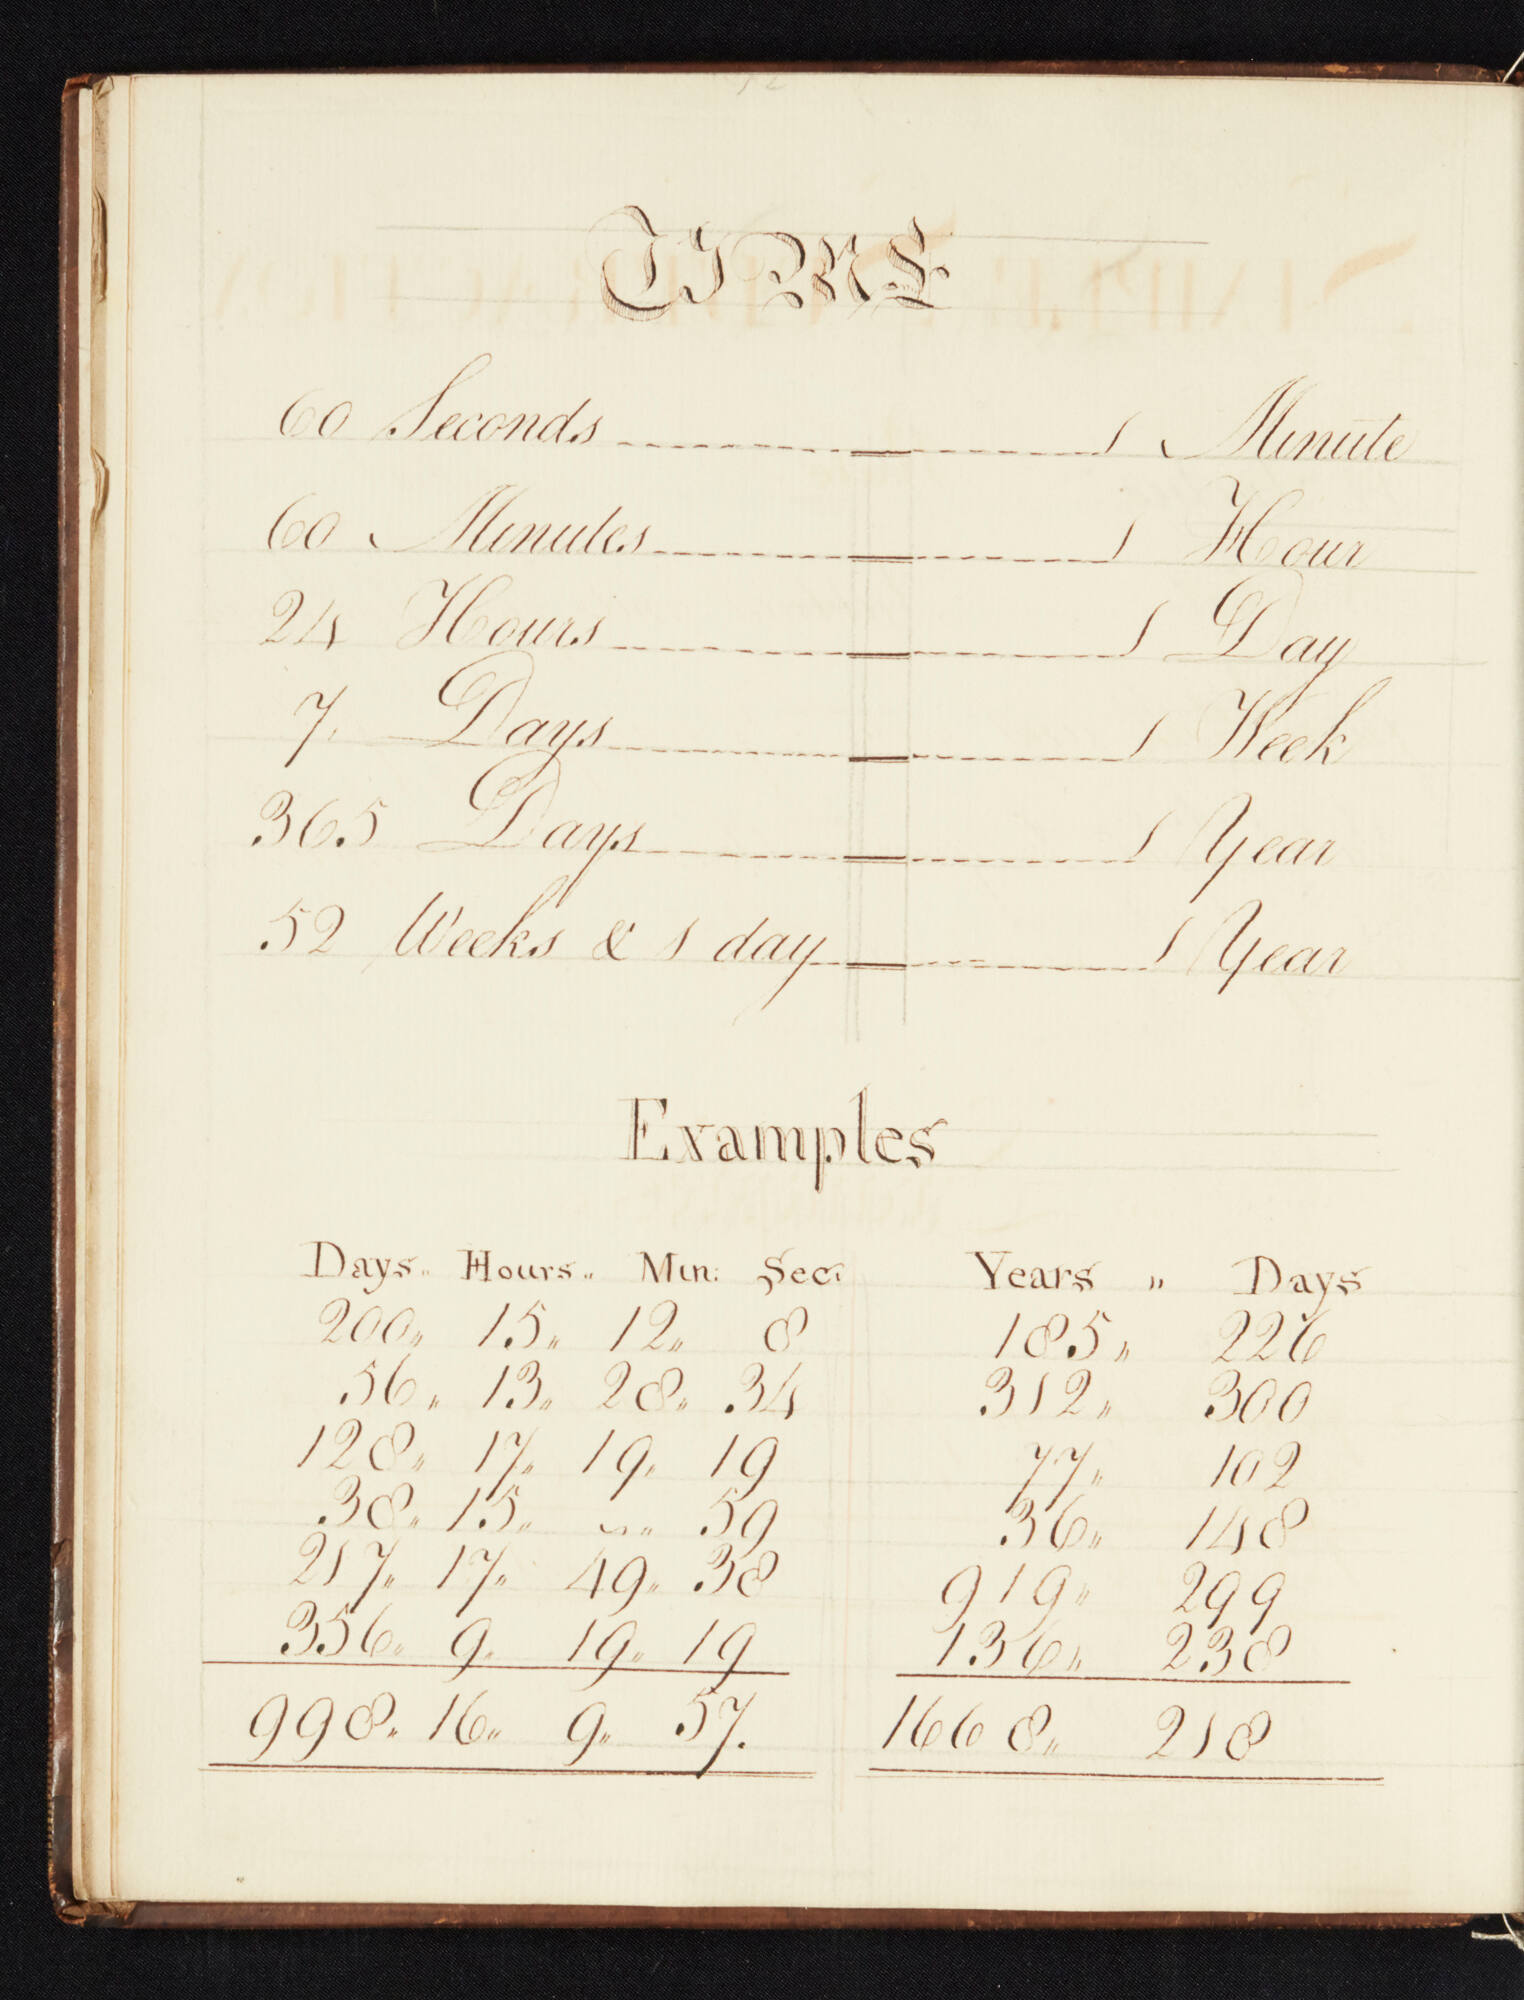 TIME
60 Seconds = 1 Minute
60 Minutes = 1 Hour
24 Hours = 1 Day
7 Days = 1 Week
365 Days = 1 Year
52 Weeks & 1 day = 1 Year
Examples
Days„ Hours„ Min: Sec: Years „ Days
200„ 15„ 12„ 8 185„ 226
56„ 13„ 28„ 34 312„ 300
128„ 17„ 19„ 19 77„ 102
38„ 15„ ~„ 59 36„ 148
217„ 17„ 49„ 38 919„ 299
356„ 9„ 19„ 19 136„ 238
998„ 16„ 9„ 57. 1668„ 218